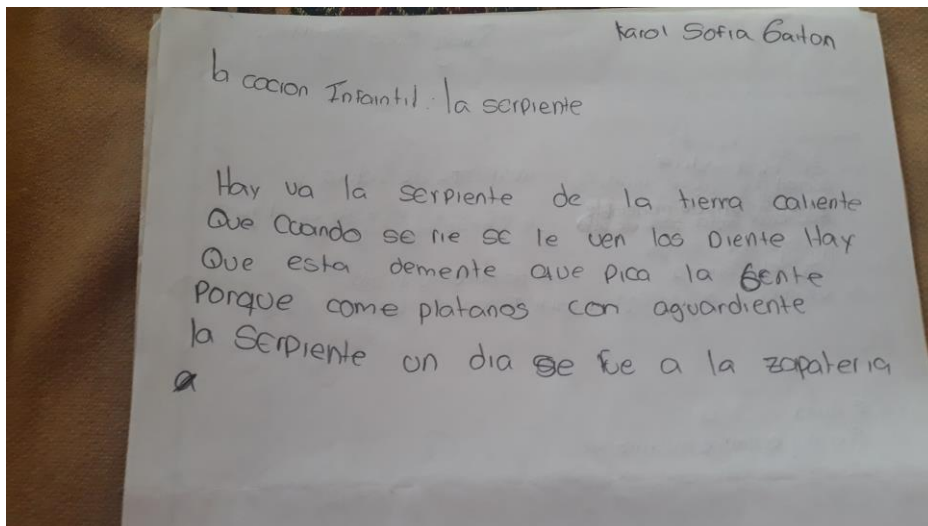 Karol Sofia Gaiton
la cocion Infaintil: la serpiente
Hay va la serpiente de la tierra caliente
Que Cuando se rie se le ven los Diente Hay
Que esta demente que pica la Gente
Porque come platanos con aguardiente
la Serpiente un dia se fue a la zapateria
a